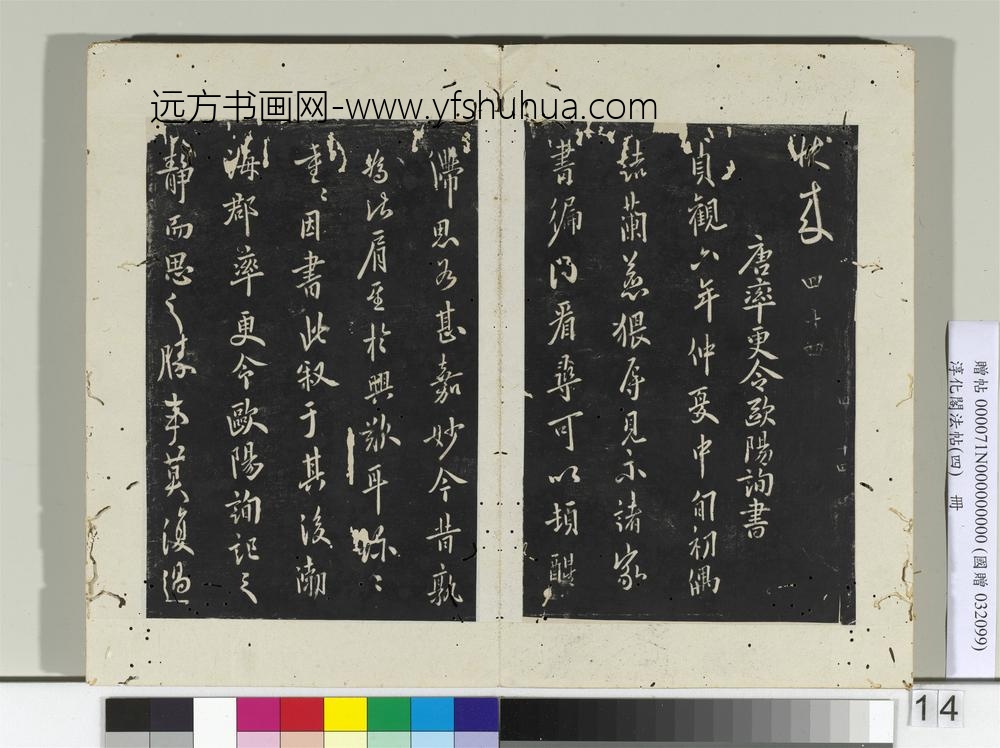 远方书画网-www.yfshuhua.com
四十四
唐率更令歐陽詢書
貞觀六年仲夏中旬初偶
蘭慈猥辱見示諸家
書遍得看尋可以頓醒
滯思名甚嘉妙今昔孰
為比肩至於興歎耳
因書此敘于其後渤
海郡率更令歐陽詢記之
靜而思之勝事莫復過
贈帖 000071N000000000 (國贈 032099)
淳化閣法帖(四) 冊
14